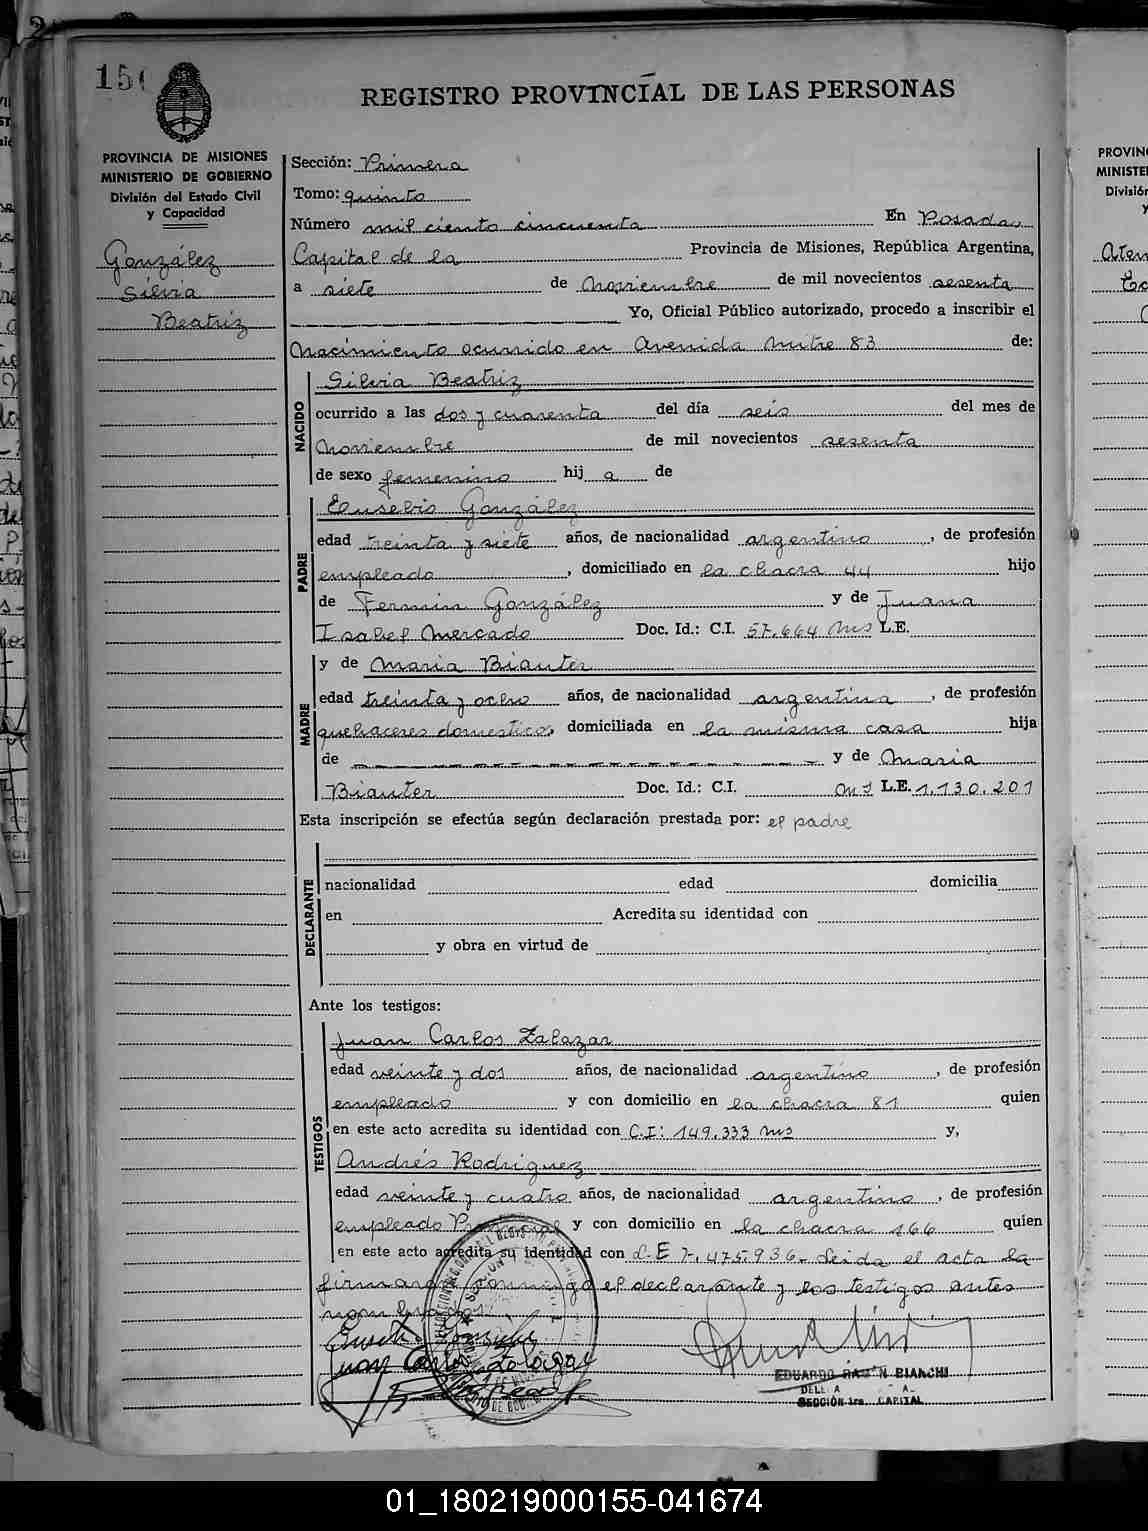 150
REGISTRO PROVINCIAL DE LAS PERSONAS
PROVINCIA DE MISIONES
MINISTERIO DE GOBIERNO
División del Estado Civil
y Capacidad
González
Silvia
Beatriz
Sección: Primera
Tomo: quinto
Número mil ciento cincuenta En Posadas,
Capital de la Provincia de Misiones, República Argentina,
a siete de Noviembre de mil novecientos sesenta
Yo, Oficial Público autorizado, procedo a inscribir el
Nacimiento ocurrido en Avenida Mitre 83 de:
NACIDO
Silvia Beatriz
ocurrido a las dos y cuarenta del día seis del mes de
Noviembre de mil novecientos sesenta
de sexo femenino hij a de
PADRE
Eusebio González
edad treinta y siete años, de nacionalidad argentino, de profesión
empleado, domiciliado en la chacra 44 hijo
de Fermin González y de Juana
Isabel Mercado Doc. Id.: C.I. 57.664 Mns L.E.
MADRE
y de Maria Biauter
edad treinta y ocho años, de nacionalidad argentina, de profesión
quehaceres domesticos, domiciliada en la misma casa hija
de — — — y de Maria
Biauter Doc. Id.: C.I. Ms L.E. 1.130.201
Esta inscripción se efectúa según declaración prestada por: el padre
DECLARANTE
nacionalidad edad domicilia
en Acredita su identidad con
y obra en virtud de
Ante los testigos:
TESTIGOS
Juan Carlos Zalazar
edad veinte y dos años, de nacionalidad argentino, de profesión
empleado y con domicilio en la chacra 81 quien
en este acto acredita su identidad con C.I: 149.333 Mns y,
Andrés Rodriguez
edad veinte y cuatro años, de nacionalidad argentino, de profesión
empleado y con domicilio en la chacra 166 quien
en este acto acredita su identidad con L.E 7.475.936- Leida el acta la
firmaron conmigo el declarante y los testigos antes
nombrados
Juan Carlos Zalazar
EDUARDO RAMON BIANCHI
SECCIÓN 1ra. CAPITAL
PROVIN
MINISTE
División
y
01_180219000155-041674